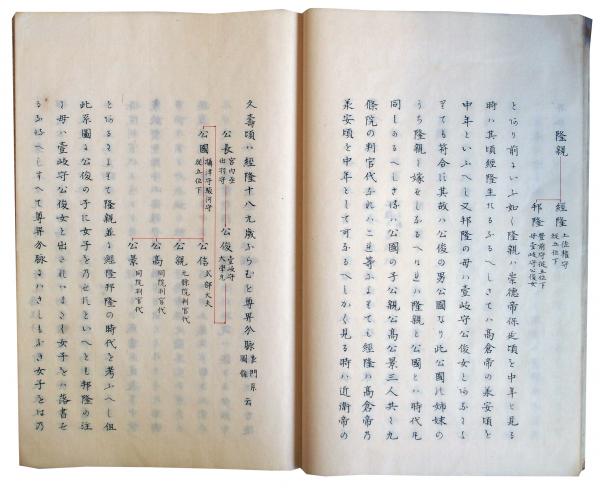 隆親
経隆 土佐権守 従五位下
邦隆 豊前守従五位下 母壹岐守公俊女
とあり前にいふ如く隆親ハ崇徳帝保延頃を中年と見る
時ハ其頃経隆生たるなるへしさてハ高倉帝の承安頃を
中年といふへし又邦隆の母ハ壹岐守公俊女とあるに
ても符合に其故ハ公俊の男公國なり此公國に姉妹の
うち隆親に嫁せしなるへき
同しあるへしさるハ公國の子公親公高公景三人共に九
條院の判官代
承安頃を中年として可なるへししかく見る時ハ近衛帝の
久壽頃ハ経隆十八九歳ならむと尊卑分脉 圖録 云
公長 宮内丞 出羽守
公俊 壹岐守 大學允
公國 攝津守駿河守 従五位下
公信 式部大夫
公親 九條院判官代
公高 同院判官代
公景 同院判官代
とあるをよせて隆親並に経隆邦隆の時代を考ふへし但
此系圖に公俊の子に女子を乃せたれといへとも邦隆の注
に母ハ壹岐守公俊女と出されハまさく女子をハ落書せ
るなるへしすへて尊卑分脉にハ